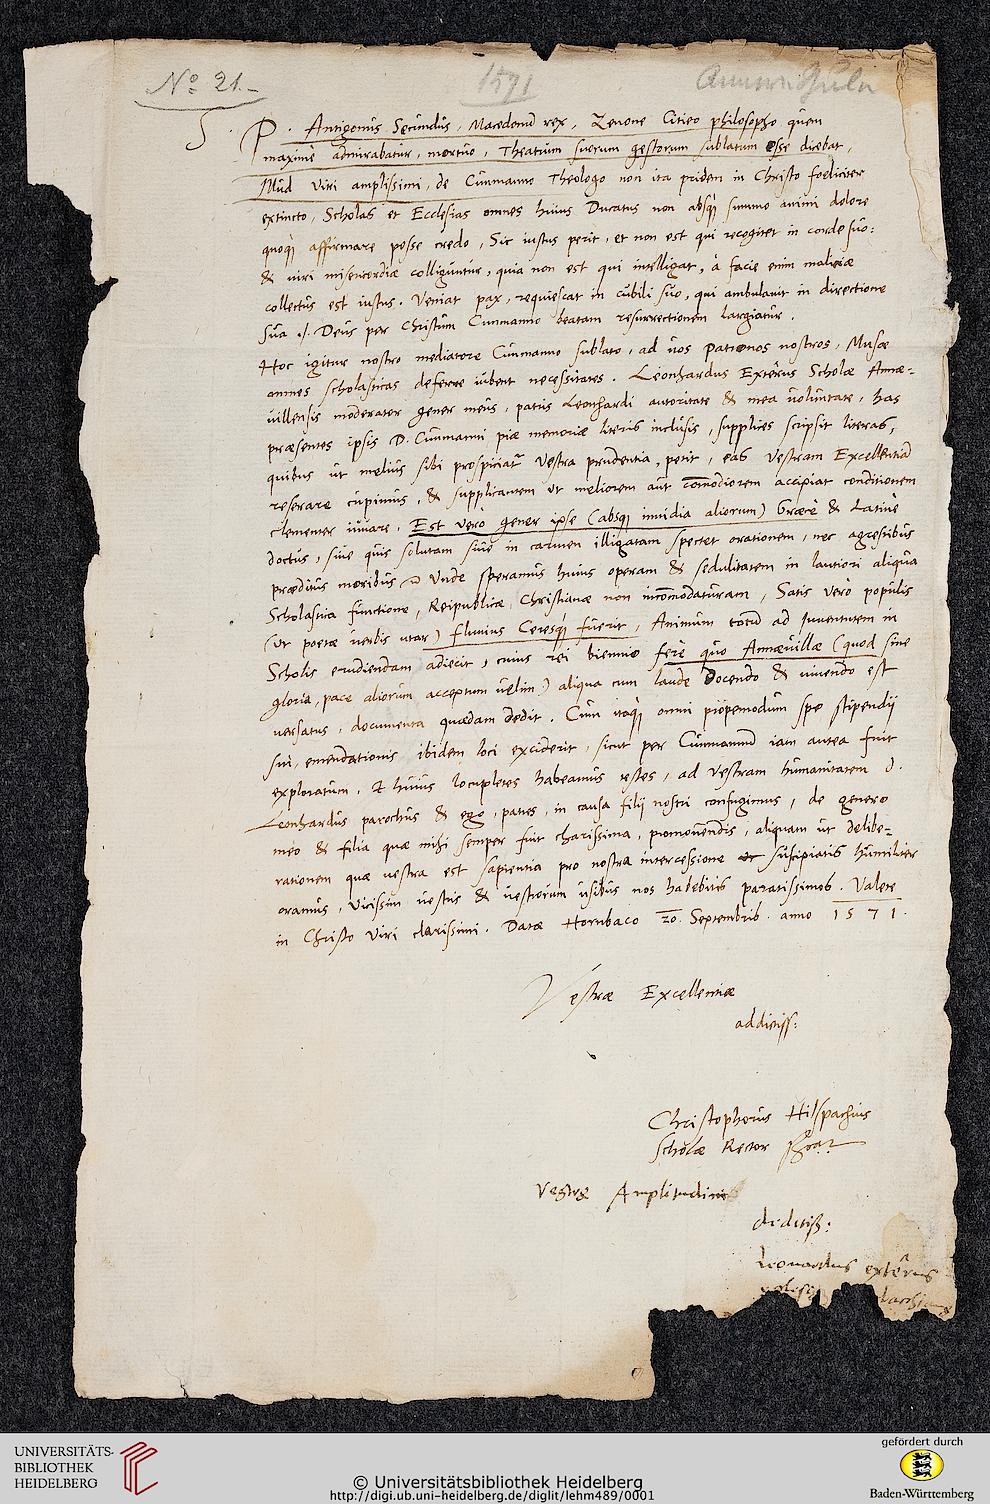 No 21.
1571
P. Antigonus Secundus, Macedonum rex, Zenone Citieo philosopho quem
maxime admirabatur, mortuo, Theatrum suorum gestorum sublatum esse dicebat,
Illud viri amplissimi, de Cunmanno Theologo non ita pridem in Christo foeliciter
extincto, Scholas et Ecclesias omnes huius Ducatus non absq́ summo animi dolore
quoq́ affirmare posse credo, Sic iustus perit, et non est qui recogitet in corde suo:
& viri misericordiæ colliguntur, quia non est qui intelligat, à facie enim malitiæ
collectus est iustus. Veniat pax, requiescat in cubili suo, qui ambulavit in directione
sua ./. Deus per Christum Cunmanno beatam resurrectionem largiatur.
Hoc igitur nostro mediatore Cunmanno sublato, ad vos Patronos nostros, Musæ
omnes scholasticas deferre iubent necessitates. Leonhardus Exterus Scholæ Annæ-
villensis moderator gener meus, patris Leonhardi autoritate & mea voluntate, has
præsentes ipsis D. Cunmanni piæ memoriæ literis inclusis, supplices scripsit literas,
quibus ut melius sibi prospiciat Vestra prudentia, petit, eas Vestram Excellentiam
reserare cupimus, & supplicantem ut meliorem aut comodiorem accipiat conditionem
clementer iuvare. Est verò gener ipse (absq́ invidia aliorum) Græcè & Latinè
doctus, sive quis solutam sive in carmen illigatam spectet orationem, nec agrestibus
præditus moribus Unde speramus huius operam & sedulitatem in lautiori aliqua
Scholastica functione, Reipublicæ Christianæ non incomodaturam, Satis verò populis
(ut poetæ verbis utar) fluvius Ceresq́ fuerit, Animum totum ad Iuventutem in
Scholis erudiendam adiecit, cuius rei biennio ferè quo Annævillæ (quod sine
gloria, pace aliorum acceptum velim) aliqua cum laude docendo & vivendo est
versatus, documenta quædam dedit. Cum itaq́ omni propemodum spe stipendii
sui, emendationis, ibidem loci exciderit, sicut per Cunmannum iam antea fuit
exploratum, & huius locupletes habeamus testes, ad Vestram humanitatem D.
Leonhardus parochus & ego, patres, in causa filij nostri confugimus, de genero
meo & filia quæ mihi semper fuit charissima, promovendis, aliquam ut delibe-
rationem quæ vestra est sapientia pro nostra intercessione suscipiatis humiliter
oramus, Vicissim vestris & vestrorum usibus nos habebitis paratissimos. Valete
in Christo Viri clarissimi. Datæ Hornbaco 20. Septembris. anno 1571.
Vestræ Excellentiæ
addictiss:
Christophorus Hilspachius
scholæ Rector
Vestræ Amplitudinis
dediciß:
Leonardus exterus
UNIVERSITÄTS-
BIBLIOTHEK
HEIDELBERG
© Universitätsbibliothek Heidelberg
http://digi.ub.uni-heidelberg.de/diglit/lehm489/0001
gefördert durch
Baden-Württemberg